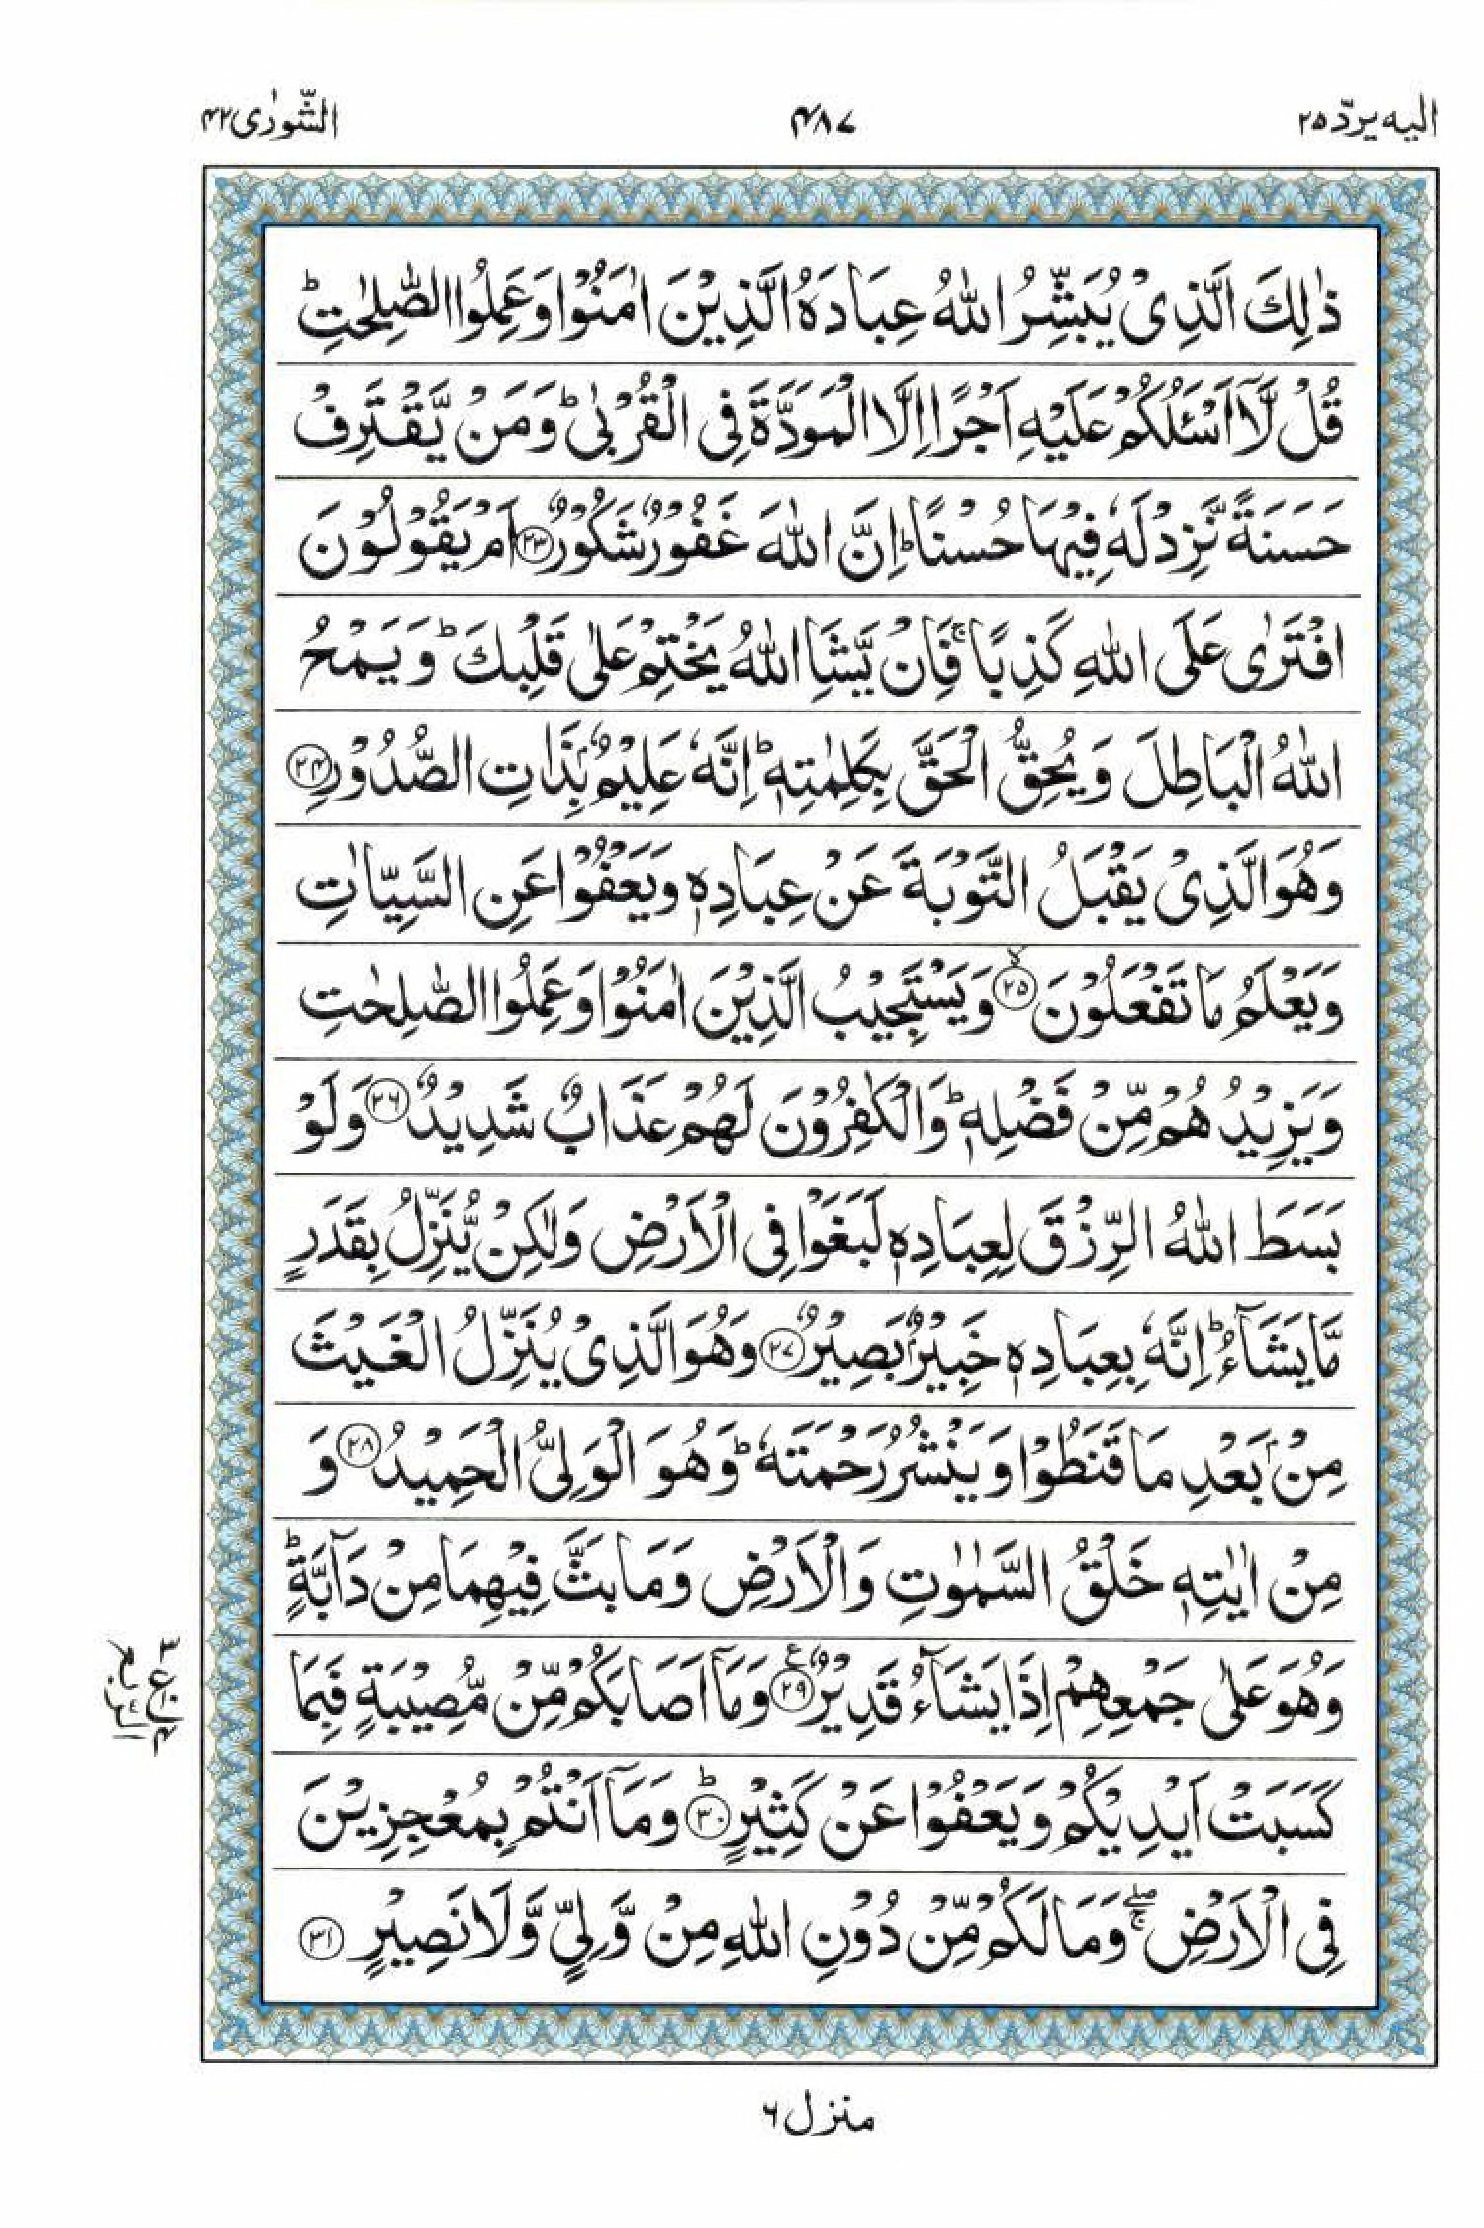 الیه یردّ ۲۵
۴۸۷
الشّورٰی ۴۲
ذٰلِكَ الَّذِیْ یُبَشِّرُ اللّٰهُ عِبَادَهُ الَّذِیْنَ اٰمَنُوْا وَعَمِلُوا الصّٰلِحٰتِ ؕ
قُلْ لَّاۤ اَسْـَٔلُكُمْ عَلَیْهِ اَجْرًا اِلَّا الْمَوَدَّةَ فِی الْقُرْبٰی ؕ وَمَنْ یَّقْتَرِفْ
حَسَنَةً نَّزِدْ لَهٗ فِیْهَا حُسْنًا ؕ اِنَّ اللّٰهَ غَفُوْرٌ شَكُوْرٌ ﴿۲۳﴾ اَمْ یَقُوْلُوْنَ
افْتَرٰی عَلَی اللّٰهِ كَذِبًا ۚ فَاِنْ یَّشَاِ اللّٰهُ یَخْتِمْ عَلٰی قَلْبِكَ ؕ وَیَمْحُ
اللّٰهُ الْبَاطِلَ وَیُحِقُّ الْحَقَّ بِكَلِمٰتِهٖ ؕ اِنَّهٗ عَلِیْمٌۢ بِذَاتِ الصُّدُوْرِ ﴿۲۴﴾
وَهُوَ الَّذِیْ یَقْبَلُ التَّوْبَةَ عَنْ عِبَادِهٖ وَیَعْفُوْا عَنِ السَّیِّاٰتِ
وَیَعْلَمُ مَا تَفْعَلُوْنَ ﴿۲۵﴾ۙ وَیَسْتَجِیْبُ الَّذِیْنَ اٰمَنُوْا وَعَمِلُوا الصّٰلِحٰتِ
وَیَزِیْدُهُمْ مِّنْ فَضْلِهٖ ؕ وَالْكٰفِرُوْنَ لَهُمْ عَذَابٌ شَدِیْدٌ ﴿۲۶﴾ وَلَوْ
بَسَطَ اللّٰهُ الرِّزْقَ لِعِبَادِهٖ لَبَغَوْا فِی الْاَرْضِ وَلٰكِنْ یُّنَزِّلُ بِقَدَرٍ
مَّا یَشَآءُ ؕ اِنَّهٗ بِعِبَادِهٖ خَبِیْرٌۢ بَصِیْرٌ ﴿۲۷﴾ وَهُوَ الَّذِیْ یُنَزِّلُ الْغَیْثَ
مِنْۢ بَعْدِ مَا قَنَطُوْا وَیَنْشُرُ رَحْمَتَهٗ ؕ وَهُوَ الْوَلِیُّ الْحَمِیْدُ ﴿۲۸﴾ وَ
مِنْ اٰیٰتِهٖ خَلْقُ السَّمٰوٰتِ وَالْاَرْضِ وَمَا بَثَّ فِیْهِمَا مِنْ دَآبَّةٍ ؕ
وَهُوَ عَلٰی جَمْعِهِمْ اِذَا یَشَآءُ قَدِیْرٌ ﴿۲۹﴾ع وَمَاۤ اَصَابَكُمْ مِّنْ مُّصِیْبَةٍ فَبِمَا
كَسَبَتْ اَیْدِیْكُمْ وَیَعْفُوْا عَنْ كَثِیْرٍ ﴿۳۰﴾ؕ وَمَاۤ اَنْتُمْ بِمُعْجِزِیْنَ
فِی الْاَرْضِ ۖۚ وَمَا لَكُمْ مِّنْ دُوْنِ اللّٰهِ مِنْ وَّلِیٍّ وَّلَا نَصِیْرٍ ﴿۳۱﴾
۳
ع
۱۰
۴
الربع
منزل ۶